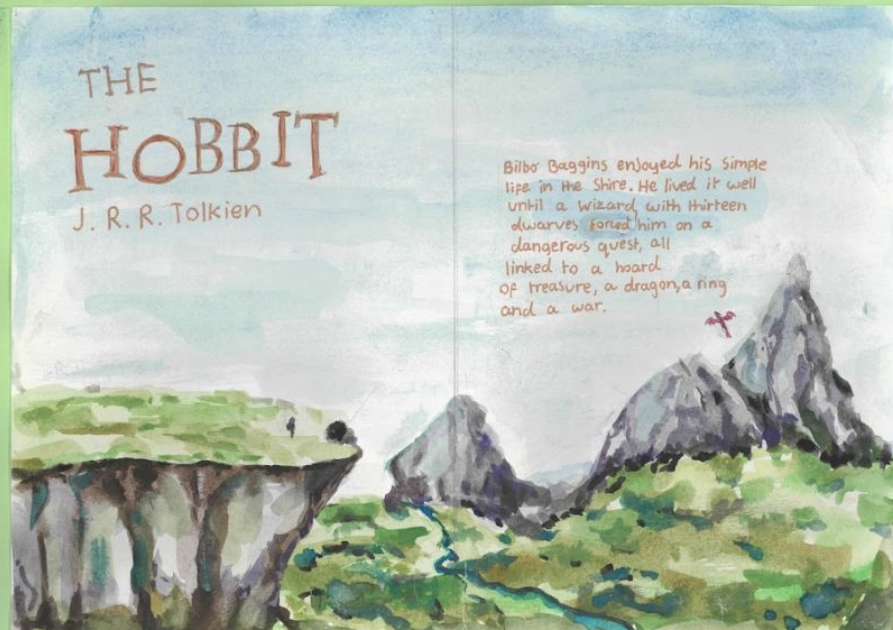 THE
HOBBIT
J. R. R. Tolkien
Bilbo Baggins enjoyed his simple
life in the Shire. He lived it well
until a wizard, with thirteen
dwarves forced him on a
dangerous quest, all
linked to a hoard
of treasure, a dragon, a ring
and a war.